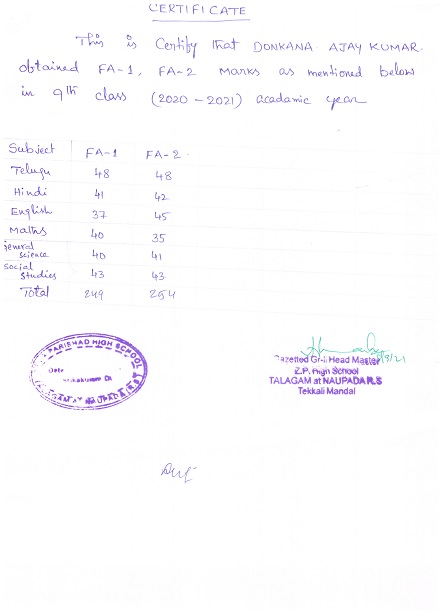 CERTIFICATE
This is Certify that DONKANA AJAY KUMAR.
obtained FA-1, FA-2 Marks as mentioned below
in 9th class (2020-2021) acadamic year
Subject FA-1 FA-2.
Telugu 48 48
Hindi 41 42
English 37 45
Maths 40 35
general science 40 41
social studies 43 43
Total 249 254
PARISHAD HIGH SCHOOL
Date
Srikakulam Dt
NAUPADA R.S
Gazetted Gr-II Head Master
Z.P. High School
TALAGAM at NAUPADA R.S
Tekkali Mandal